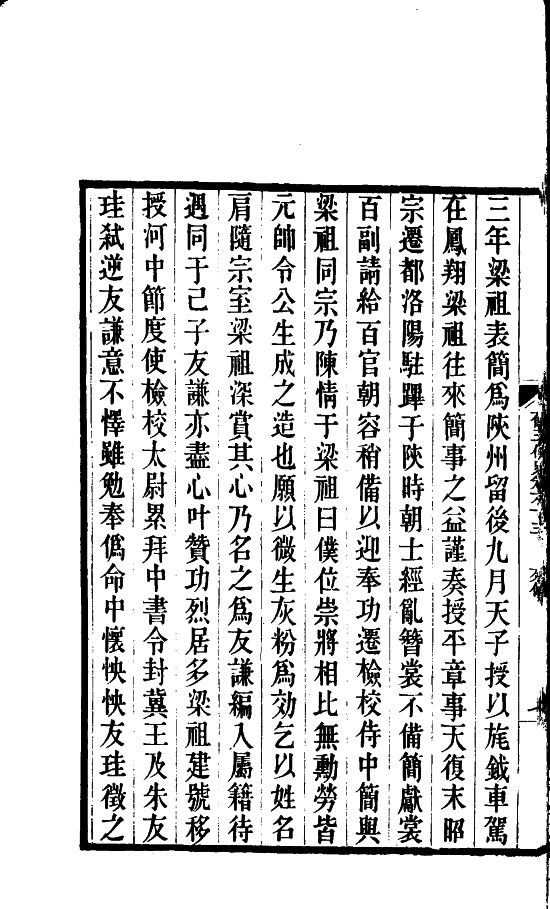 三年梁祖表簡爲陝州留後九月天子授以旄鉞車駕
在鳳翔梁祖往來簡事之益謹奏授平章事天復末昭
宗遷都洛陽駐蹕于陝時朝士經亂簪裳不備簡獻裳
百副請給百官朝容稍備以迎奉功遷檢校侍中簡與
梁祖同宗乃陳情于梁祖曰僕位崇將相比無勳勞皆
元帥令公生成之造也願以微生灰粉爲効乞以姓名
肩隨宗室梁祖深賞其心乃名之爲友謙編入屬籍待
遇同于己子友謙亦盡心叶贊功烈居多梁祖建號移
授河中節度使檢校太尉累拜中書令封冀王及朱友
珪弑逆友謙意不懌雖勉奉僞命中懷怏怏友珪徵之